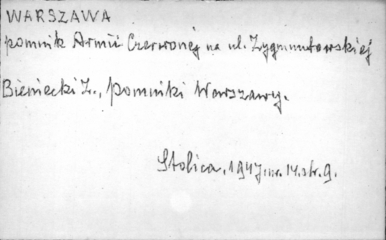 WARSZAWA
pomnik Armii Czerwonej na ul. Zygmuntowskiej
Bieniecki Z., Pomniki Warszawy.
Stolica, 1947, nr. 14. str. 9.